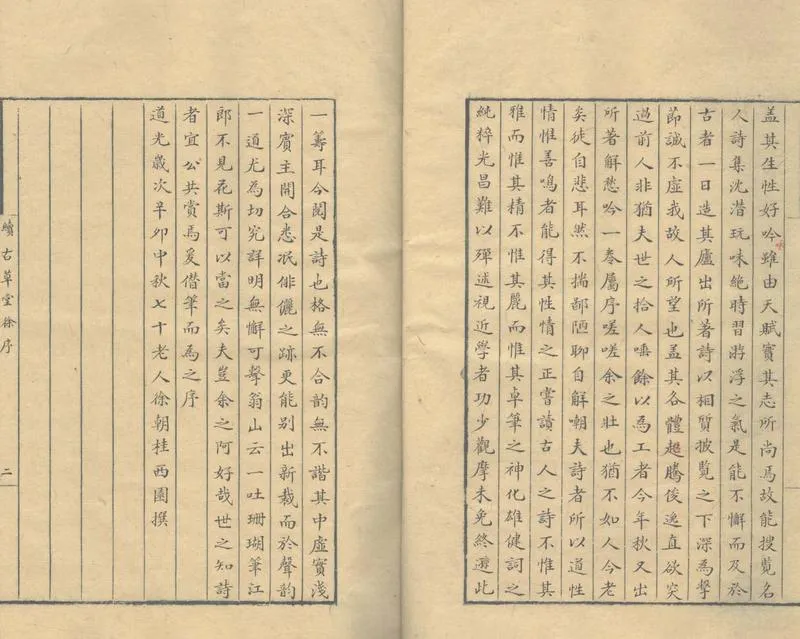 蓋其生性好吟雖由天賦實其志所尚焉故能搜覽名
人詩集沈潜玩味絶時習浮之氣是能不懈而及於
古者一日造其廬出所著詩以相質披覽之下深爲擊
節誠不虛我故人所望也蓋其各體超騰俊逸直欲突
過前人非猶夫世之拾人唾餘以爲工者今年秋又出
所著解愁吟一卷屬序嗟嗟余之壯也猶不如人今老
矣徒自悲耳然不揣鄙陋聊自解嘲夫詩者所以道性
情惟善鳴者能得其性情之正嘗讀古人之詩不惟其
雅而惟其精不惟其麗而惟其卓筆之神化雄健詞之
純粹光昌難以殫述視近學者功少觀摩未免終遜此
一籌耳今閱是詩也格無不合韵無不諧其中虛實淺
深賓主開合悉泯俳儷之跡更能别出新裁而於聲韵
一道尤爲切究詳明無懈可擊翁山云一吐珊瑚筆江
郎不見花斯可以當之矣夫豈余之阿好哉世之知詩
者宜公共賞焉爰借筆而爲之序
道光歲次辛卯中秋七十老人徐朝桂西園撰
續古草堂徐序
二